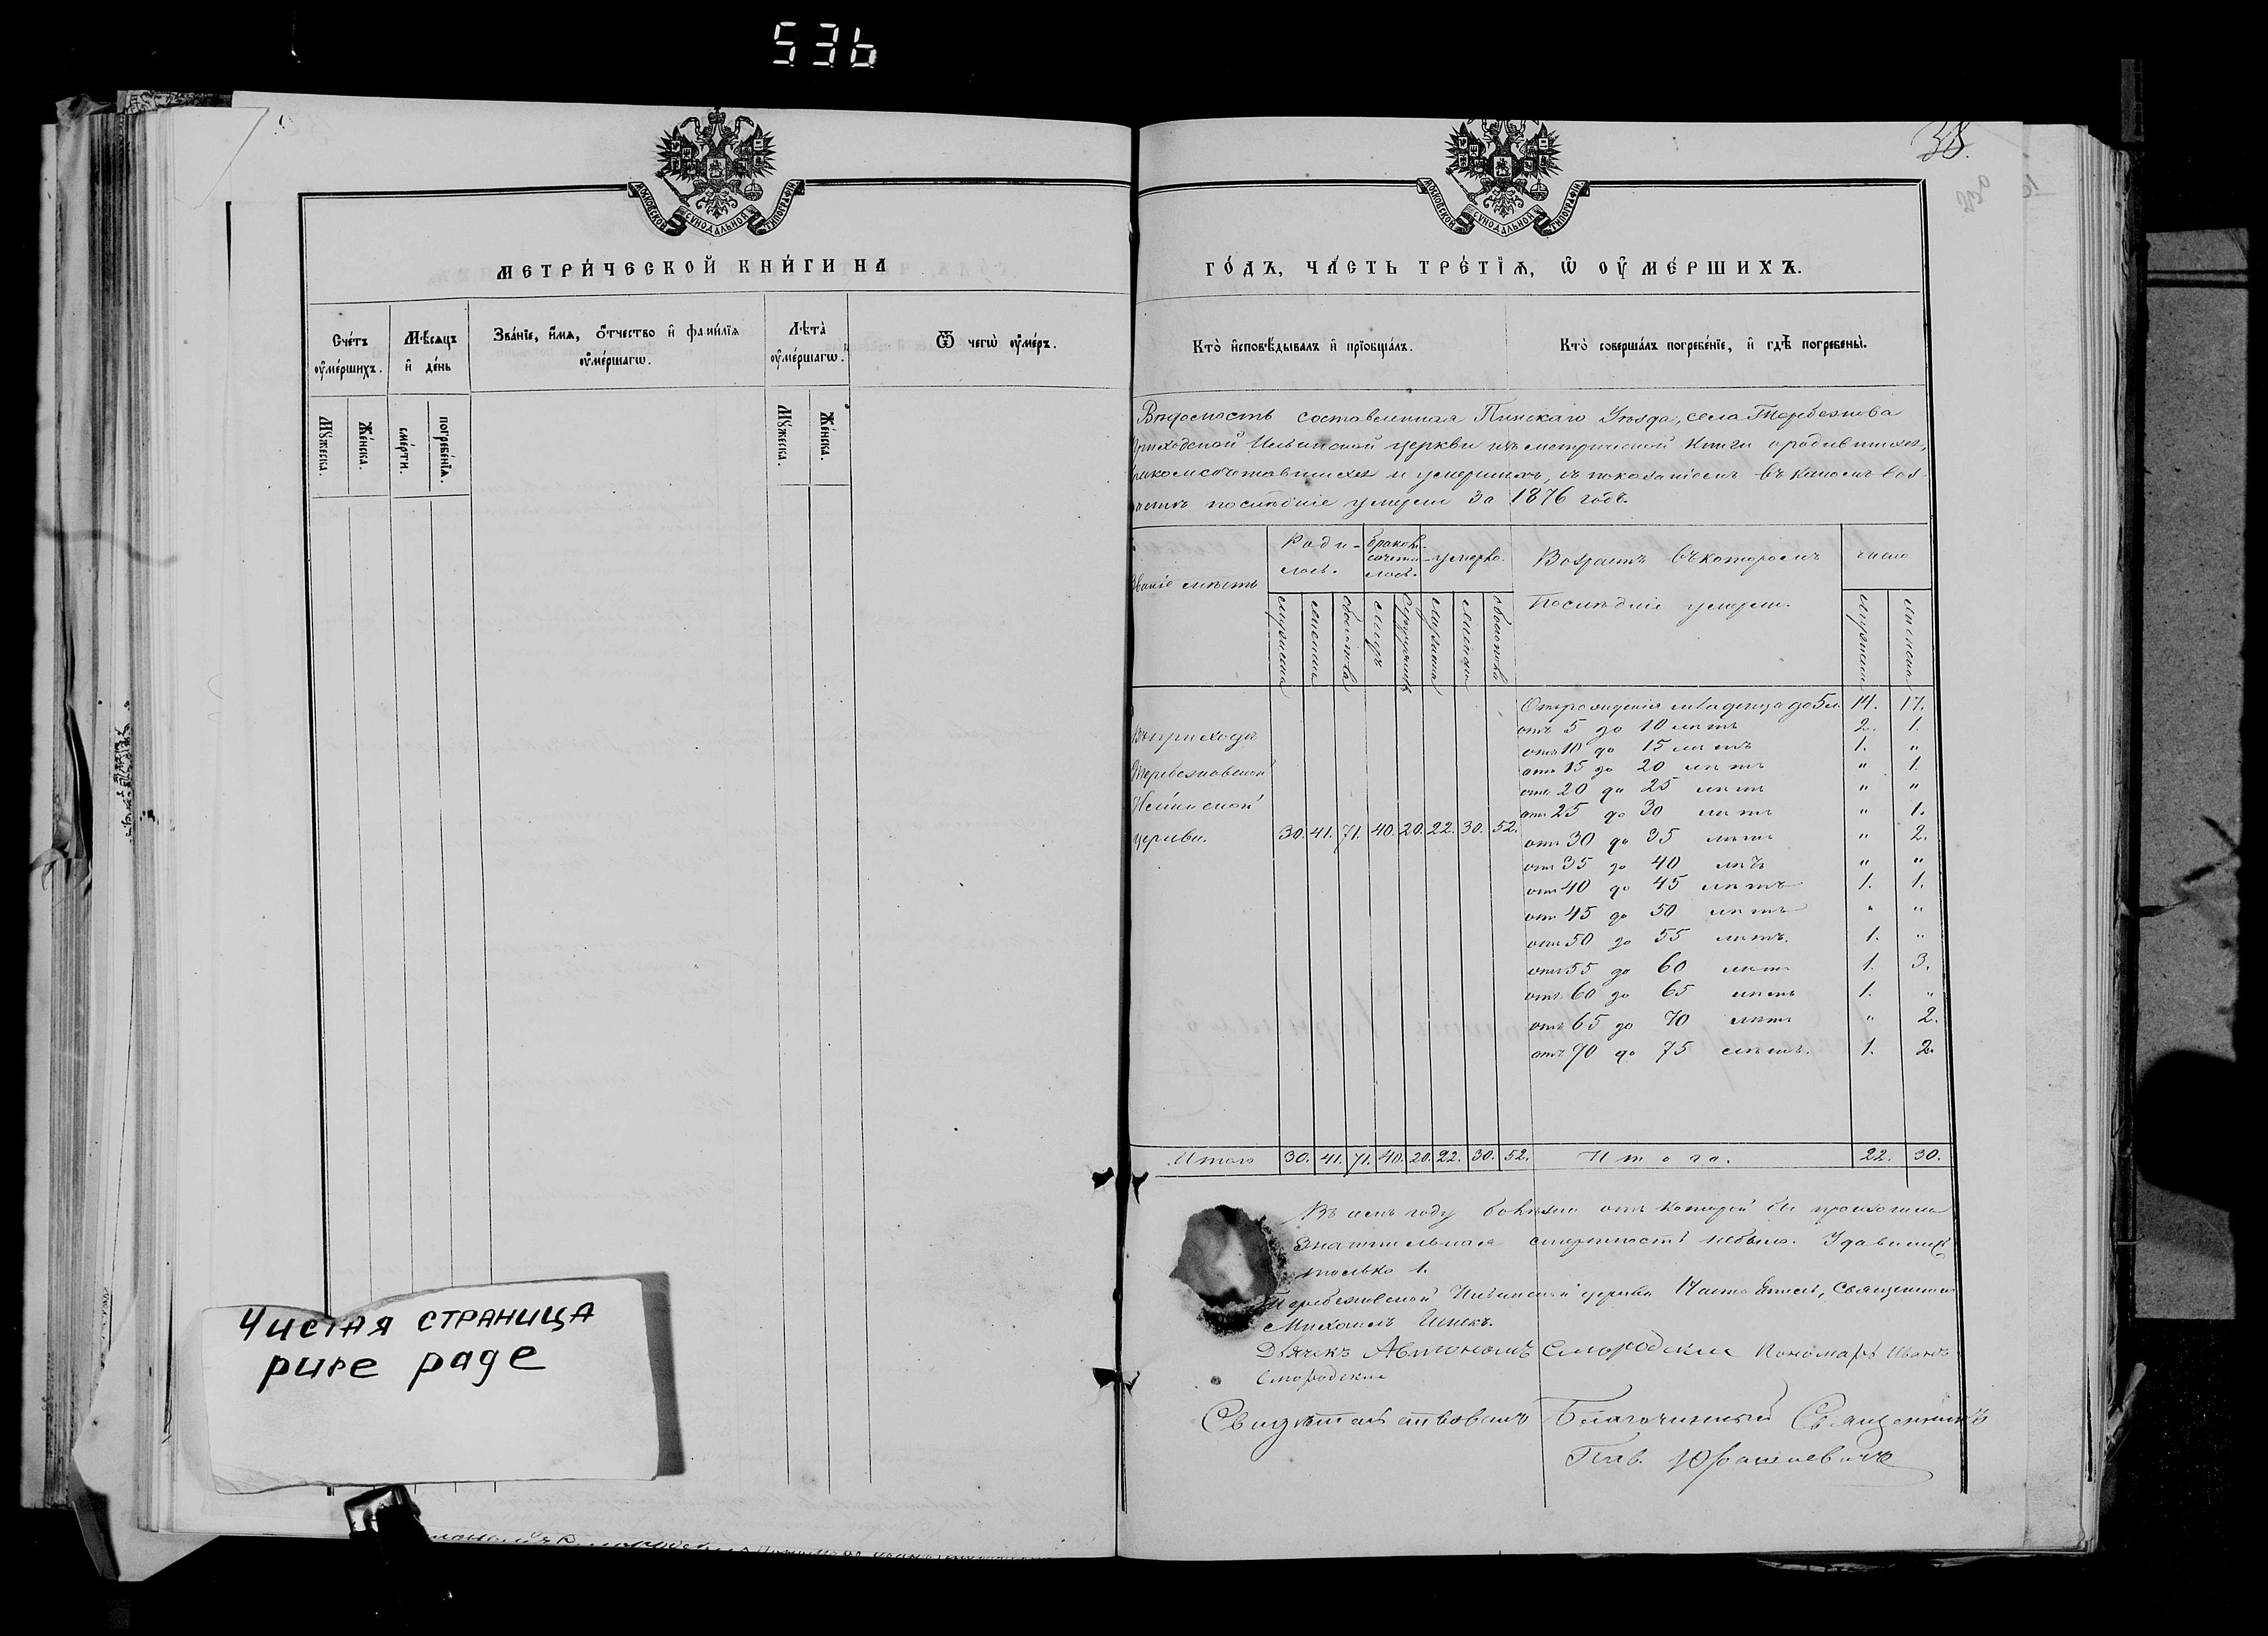 536
МОСКОВСКОЙ СУНОДАЛЬНОЙ ТИПОГРАФІИ
МЕТРИ́ЧЕСКОЙ КНИ́ГИ НА
Сче́тъ ᲂу҆ме́ршихъ.
Мѣ́сяцъ и҆ де́нь
Зва́нїе, и҆́мѧ, ѻ҆́тчество и҆ фами́лїѧ ᲂу҆ме́ршагѡ.
Лѣта̀ ᲂу҆ме́ршагѡ.
Ѿ чегѡ̀ ᲂу҆́меръ.
Мꙋ́жеска.
Же́нска.
сме́рти.
погребе́нїѧ.
Мꙋ́жеска.
Же́нска.
Чистая страница
pure page
38.
МОСКОВСКОЙ СУНОДАЛЬНОЙ ТИПОГРАФІИ
ГО́ДЪ, ЧА́СТЬ ТРЕ́ТЇѦ, Ѡ҆ ОУ҆МЕ́РШИХЪ.
Кто̀ и҆сповѣ́дывалъ и҆ прїобща́лъ.
Кто̀ соверша́лъ погребе́нїе, и҆ гдѣ̀ погребены̀.
Вѣдомость составленная Пинскаго Уѣзда, села Теребежова
Приходской Ильинской церкви изъ метрической книги о родившихся,
бракомсочетавшихся и умершихъ, съ показаніемъ въ какомъ воз-
растѣ послѣдніе умерли за 1876 годъ.
Званіе мѣстъ
Роди-
лось.
браковъ
сочета-
лось.
умерло.
Возрастъ въ которомъ
Послѣдніе умерли.
число
мужеска
женска
обоихъ
лицъ
Супружествъ
мужеска
женска
мужеска
женска
Въ приходѣ
Теребежовской
Ильинской
церкви.
30. 41. 71. 40. 20. 22. 30. 52.
Отъ рожденія младенца до 5 л. 14. 17.
отъ 5 до 10 лѣтъ 2. 1.
отъ 10 до 15 лѣтъ 1. "
отъ 15 до 20 лѣтъ " 1.
отъ 20 до 25 лѣтъ " "
отъ 25 до 30 лѣтъ " 1.
отъ 30 до 35 лѣтъ " 2.
отъ 35 до 40 лѣтъ " "
отъ 40 до 45 лѣтъ 1. 1.
отъ 45 до 50 лѣтъ " "
отъ 50 до 55 лѣтъ. 1. "
отъ 55 до 60 лѣтъ 1. 3.
отъ 60 до 65 лѣтъ 1. "
отъ 65 до 70 лѣтъ " 2.
отъ 70 до 75 лѣтъ. 1. 2.
Итого 30. 41. 71. 40. 20. 22. 30. 52. Итого. 22. 30.
Въ семъ году болѣзни отъ которой бы произошла
значительная смертность небыло.
только 1.
Теребежовской Ильинской церкви Настоятель, Священникъ
Михаилъ
Дьячекъ Автономъ Смородскій Пономарь Иванъ
Смородскій
Свидѣтельствовалъ Благочинный Священникъ